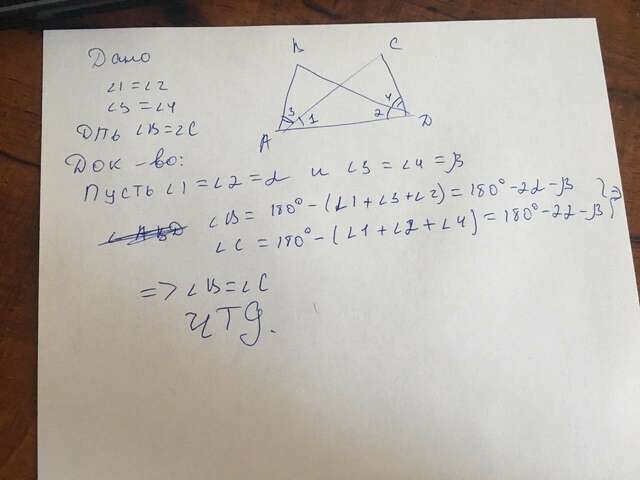 Дано
∠1=∠2
∠3=∠4
Д-ть ∠B=∠C
B
C
3
1
4
2
A
D
Док-во:
Пусть ∠1=∠2=α и ∠3=∠4=β
∠B=180°-(∠1+∠3+∠2)=180°-2α-β } =>
∠C=180°-(∠1+∠2+∠4)=180°-2α-β
=> ∠B=∠C
ЧТД.